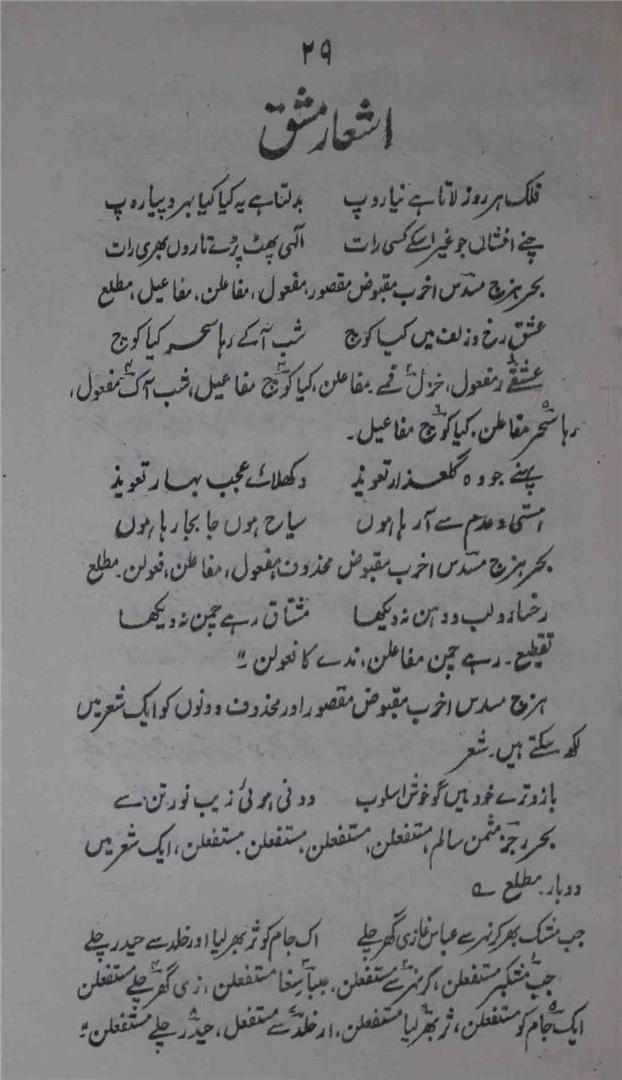 ۲۹
اشعار مشق
فلک ہر روز لاتا ہے نیا روپ    بدلتا ہے یہ کیا کیا بہروپیا روپ
چنے افشاں جو غیر اسکے کسی رات    الٰہی پھٹ پڑے تاروں بھری رات
بحر ہزج مسدس اخرب مقبوض مقصور، مفعول، مفاعلن، مفاعیل، مطلع
عشق رخ و زلف میں کیا کوچ    شب آکے رہا سحر کیا کوچ
عشقے، مفعول، مفاعلن، کیا کوچ مفاعیل، شب آک مفعول،
رہا سحر مفاعلن، کیا کوچ مفاعیل۔
پہنے جو وہ گلعذار تعویذ    دکھلائے عجب بہار تعویذ
عدم سے آرہا ہوں    سیاح ہوں جا بجا رہا ہوں
بحر ہزج مسدس اخرب مقبوض محذوف مفعول، مفاعلن، فعولن۔ مطلع
رخسارہ و لب و دہن نہ دیکھا    مشتاق رہے چمن نہ دیکھا
تقطیع۔ رہے چمن مفاعلن، ندے کا فعولن۔"
ہزج مسدس اخرب مقبوض مقصور اور محذوف دونوں کو ایک شعر میں
لکھ سکتے ہیں۔ شعر
بازو ترے خود ہیں گو خوش اسلوب    دونی ہوئی زیب نورتن سے
بحر رجز مثمن سالم، مستفعلن، مستفعلن، مستفعلن، مستفعلن، ایک شعر میں
دو بار۔ مطلع
جب مشک بھر کر نہر سے عباس غازی گھر چلے    اک جام کوثر بھر لیا اور خلد سے حیدر چلے
جب مشکبر مستفعلن، کر نہر سے مستفعلن، عبباس غا مستفعلن، زی گھر چلے مستفعلن
ایک جام کو مستفعلن، ثر بھر لیا مستفعلن، ار خلد سے مستفعل، حیدر چلے مستفعلن۔"